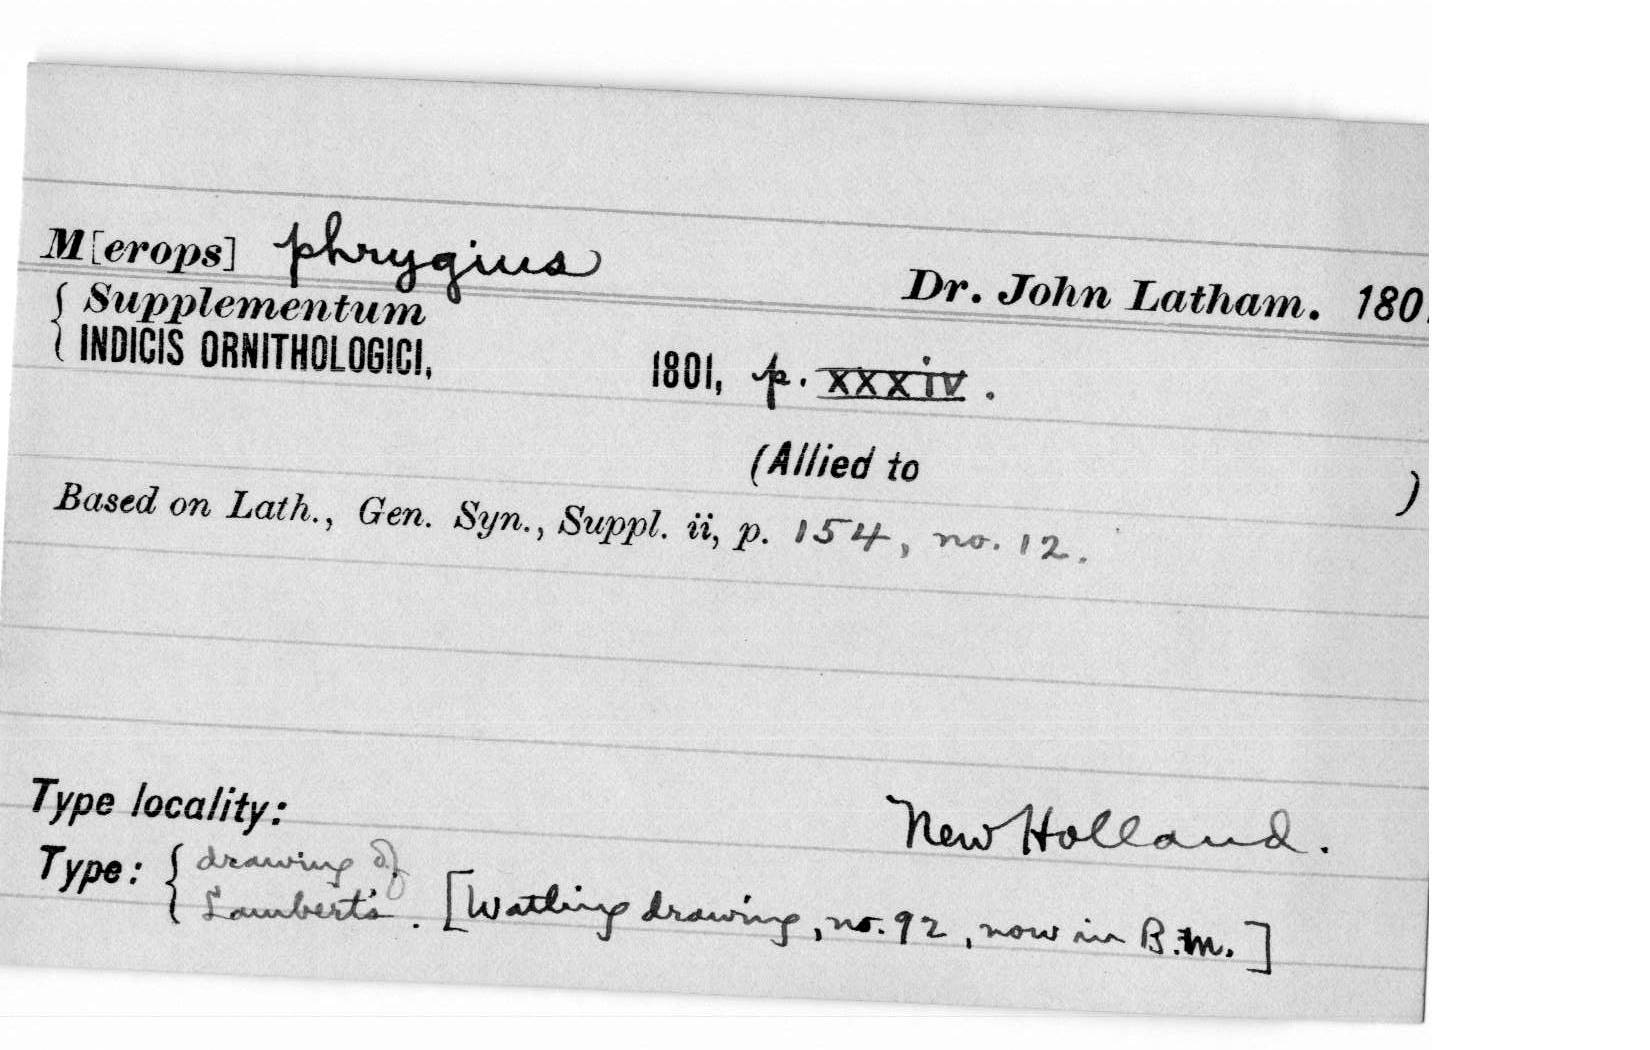 M[erops] phrygius
Dr. John Latham. 180
{ Supplementum
{ INDICIS ORNITHOLOGICI, 1801, p. xxxiv.
(Allied to )
Based on Lath., Gen. Syn., Suppl. ii, p. 154, no. 12.
Type locality: New Holland.
Type: { drawing of
Lambert's. [Watling drawing, no. 92, now in B.M.]